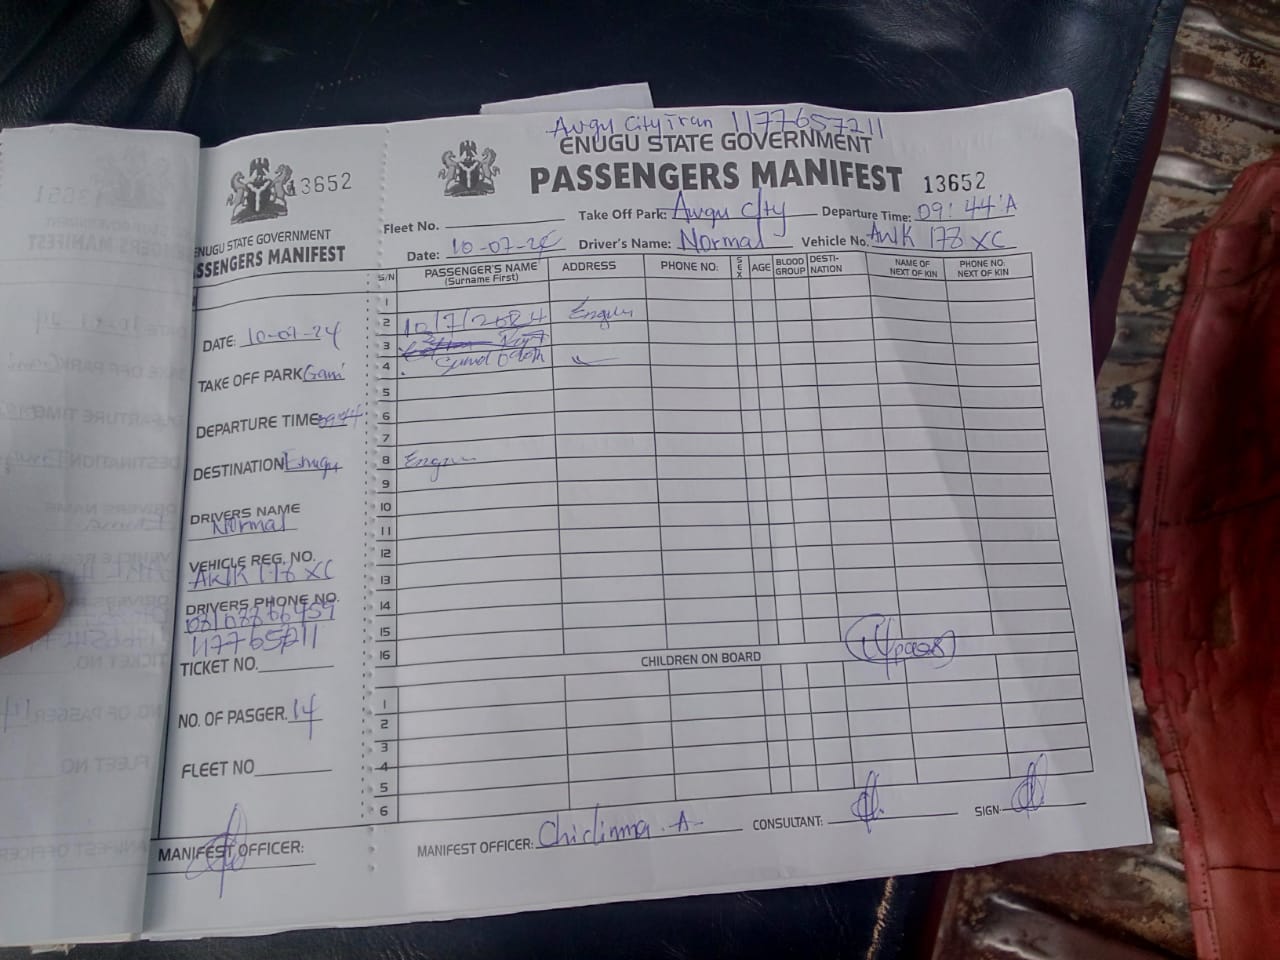 13652
ENUGU STATE GOVERNMENT
PASSENGERS MANIFEST
DATE: 10-07-24
TAKE OFF PARK
DEPARTURE TIME 09:44
DESTINATION Enugu
DRIVERS NAME
Normal
VEHICLE REG. NO.
AWK 178 XC
DRIVERS PHONE NO.
TICKET NO.
NO. OF PASGER. 14
FLEET NO
MANIFEST OFFICER:
Awgu City Tran 1177657211
ENUGU STATE GOVERNMENT
PASSENGERS MANIFEST 13652
Fleet No. Take Off Park: Awgu City Departure Time: 09:44:A
Date: 10-07-24 Driver's Name: Normal Vehicle No. AWK 178 XC
S/N PASSENGER'S NAME (Surname First) ADDRESS PHONE NO: SEX AGE BLOOD GROUP DESTI-NATION NAME OF NEXT OF KIN PHONE NO: NEXT OF KIN
1
2 10/7/2024 Enugu
3
4
5
6
7
8 Enugu
9
10
11
12
13
14
15
16
CHILDREN ON BOARD
1
2
3
4
5
6
MANIFEST OFFICER: Chidinma. A- CONSULTANT: SIGN